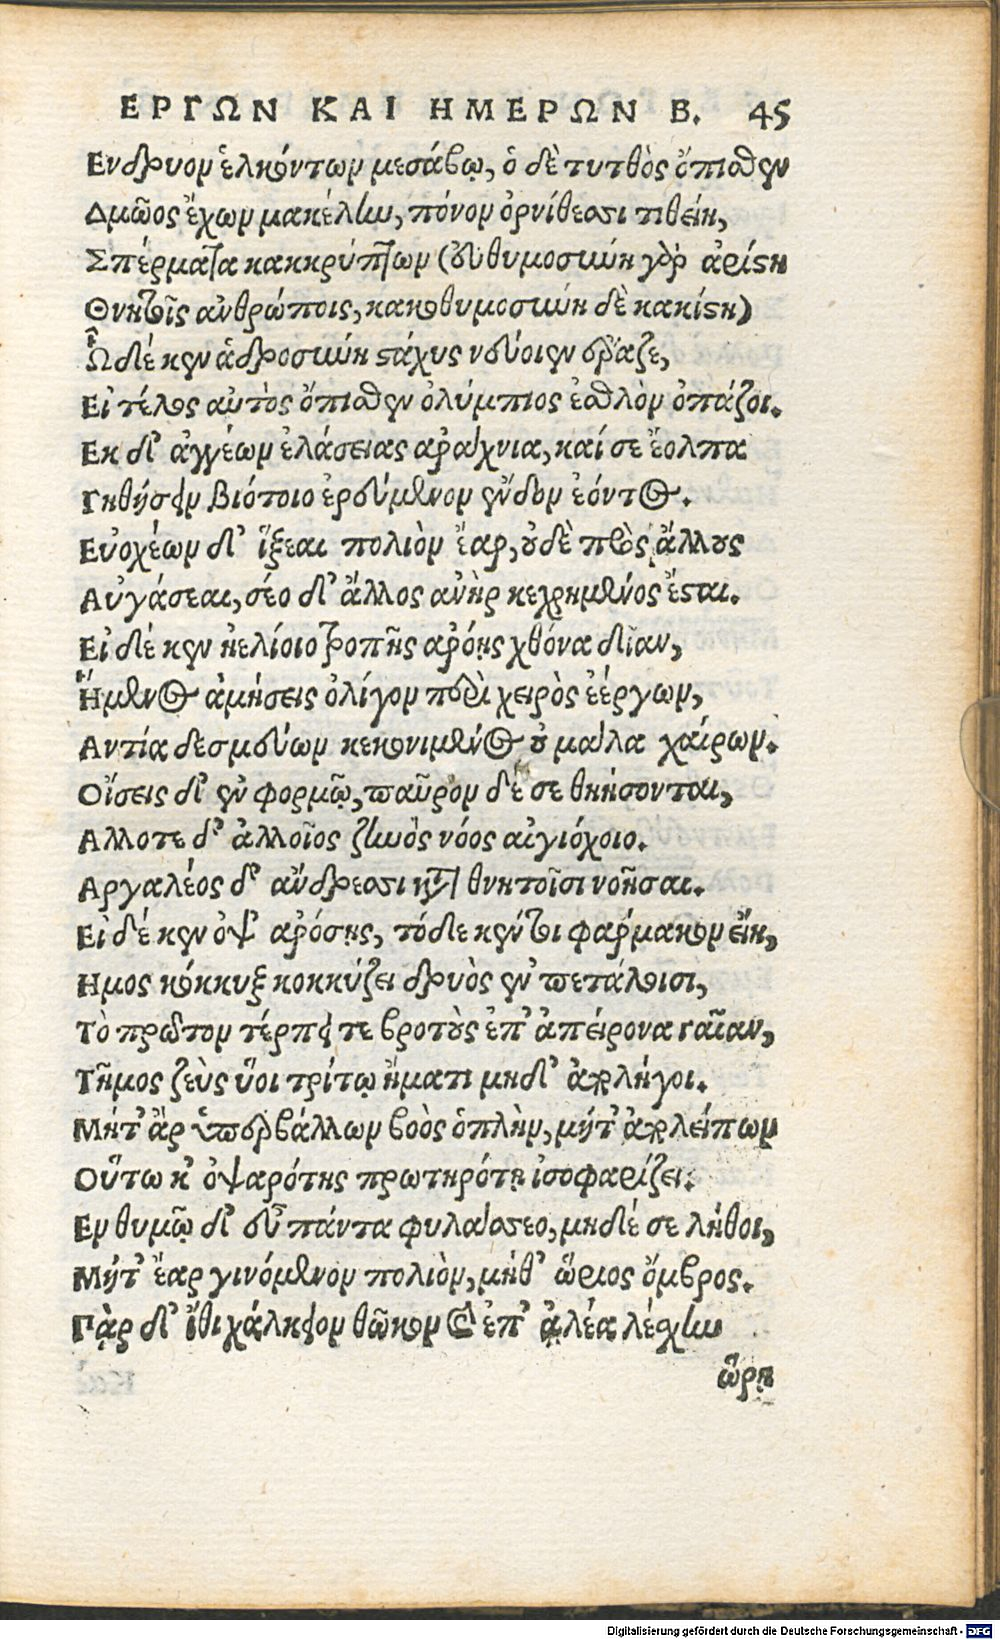 ΕΡΓΩΝ ΚΑΙ ΗΜΕΡΩΝ Β. 45
Ενδρυον ἑλκόντων μεσάβῳ, ὁ δὲ τυτθὸς ὄπισθεν
Δμῶος ἔχων μακέλην, πόνον ὀρνίθεσσι τιθείη,
Σπέρματα κακκρύπτων (ἐυθυμοσύνη γὰρ ἀρίστη
Θνητοῖς ἀνθρώποις, κακοθυμοσύνη δὲ κακίστη)
Ὧδέ κεν ἁδροσύνη στάχυς νεύοιεν ἔραζε,
Εἰ τέλος αὐτὸς ὄπισθεν ὀλύμπιος ἐσθλὸν ὀπάζοι.
Εκ δ' ἀγγέων ἐλάσειας αράχνια, καί σε ἔολπα
Γηθήσειν βιότοιο ἐρεύμενον ἔνδον ἐόντος.
Εὐοχέων δ' ἵξεαι πολιὸν ἔαρ, οὐδὲ πρὸς ἄλλους
Αὐγάσεαι, σέο δ' ἄλλος ανὴρ κεχρημένος ἔσται.
Εἰ δέ κεν ἠελίοιο τροπῇς αρόῃς χθόνα δῖαν,
Ἥμενος ἀμήσεις ὀλίγον περὶ χειρὸς ἐέργων,
Αντία δεσμεύων κεκονιμένος οὐ μάλα χαίρων.
Οἴσεις δ' ἐν φορμῷ, παῦροι δέ σε θηήσονται,
Αλλοτε δ' ἀλλοῖος ζηνὸς νόος αἰγιόχοιο.
Αργαλέος δ' ἄνδρεσσι κατὰ θνητοῖσι νοῆσαι.
Εἰ δέ κεν ὀψ' αρόσῃς, τόδε κέν τοι φάρμακον εἴη,
Ημος κόκκυξ κοκκύζει δρυὸς ἐν πετάλοισι,
Τὸ πρῶτον τέρπει τε βροτοὺς ἐπ' ἀπείρονα γαῖαν,
Τῆμος ζεὺς ὕοι τρίτῳ ἤματι μηδ' ἀπολήγοι.
Μήτ' ἂρ ὑπερβάλλων βοὸς ὁπλὴν, μήτ' ἀπολείπων
Οὕτω κ' ὀψαρότης πρωτηρότῃ ἰσοφαρίζει.
Εν θυμῷ δ' εὖ πάντα φυλάσσεο, μηδέ σε λήθοι,
Μήτ' ἔαρ γινόμενον πολιὸν, μήθ' ὥριος ὄμβρος.
Πὰρ δ' ἴθι χάλκειον θῶκον καὶ ἐπ' ἀλέα λέσχην
ὥρῃ